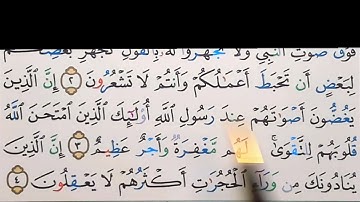 فَوْقَ صَوْتِ النَّبِيِّ وَلَا تَجْهَرُوا لَهُ بِالْقَوْلِ كَجَهْرِ بَعْضِكُمْ
لِبَعْضٍ أَن تَحْبَطَ أَعْمَٰلُكُمْ وَأَنتُمْ لَا تَشْعُرُونَ ٢ إِنَّ الَّذِينَ
يَغُضُّونَ أَصْوَٰتَهُمْ عِندَ رَسُولِ اللَّهِ أُوْلَٰٓئِكَ الَّذِينَ امْتَحَنَ اللَّهُ
قُلُوبَهُمْ لِلتَّقْوَىٰ ۚ لَهُم مَّغْفِرَةٌ وَأَجْرٌ عَظِيمٌ ٣ إِنَّ الَّذِينَ
يُنَادُونَكَ مِن وَرَآءِ الْحُجُرَٰتِ أَكْثَرُهُمْ لَا يَعْقِلُونَ ٤